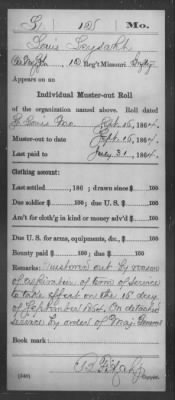 Mo.
Louis
10 Reg't Missouri
Appears on an
Individual Muster-out Roll
of the organization named above. Roll dated
St. Louis Mo. Sept. 15, 1864.
Muster-out to date Sept. 15, 1864.
Last paid to July 31, 1864.
Clothing account:
Last settled , 186 ; drawn since $ 100
Due soldier $ 100; due U. S. $ 100
Am't for cloth'g in kind or money adv'd $ 100
Due U. S. for arms, equipments, &c., $ 100
Bounty paid $ 100; due $ 100
Remarks: Mustered out by reason
of expiration of term of service
to take effect on the 15 day
of September 1864. On detached
service by order of Maj. General
Book mark:
(340)
Copyist.